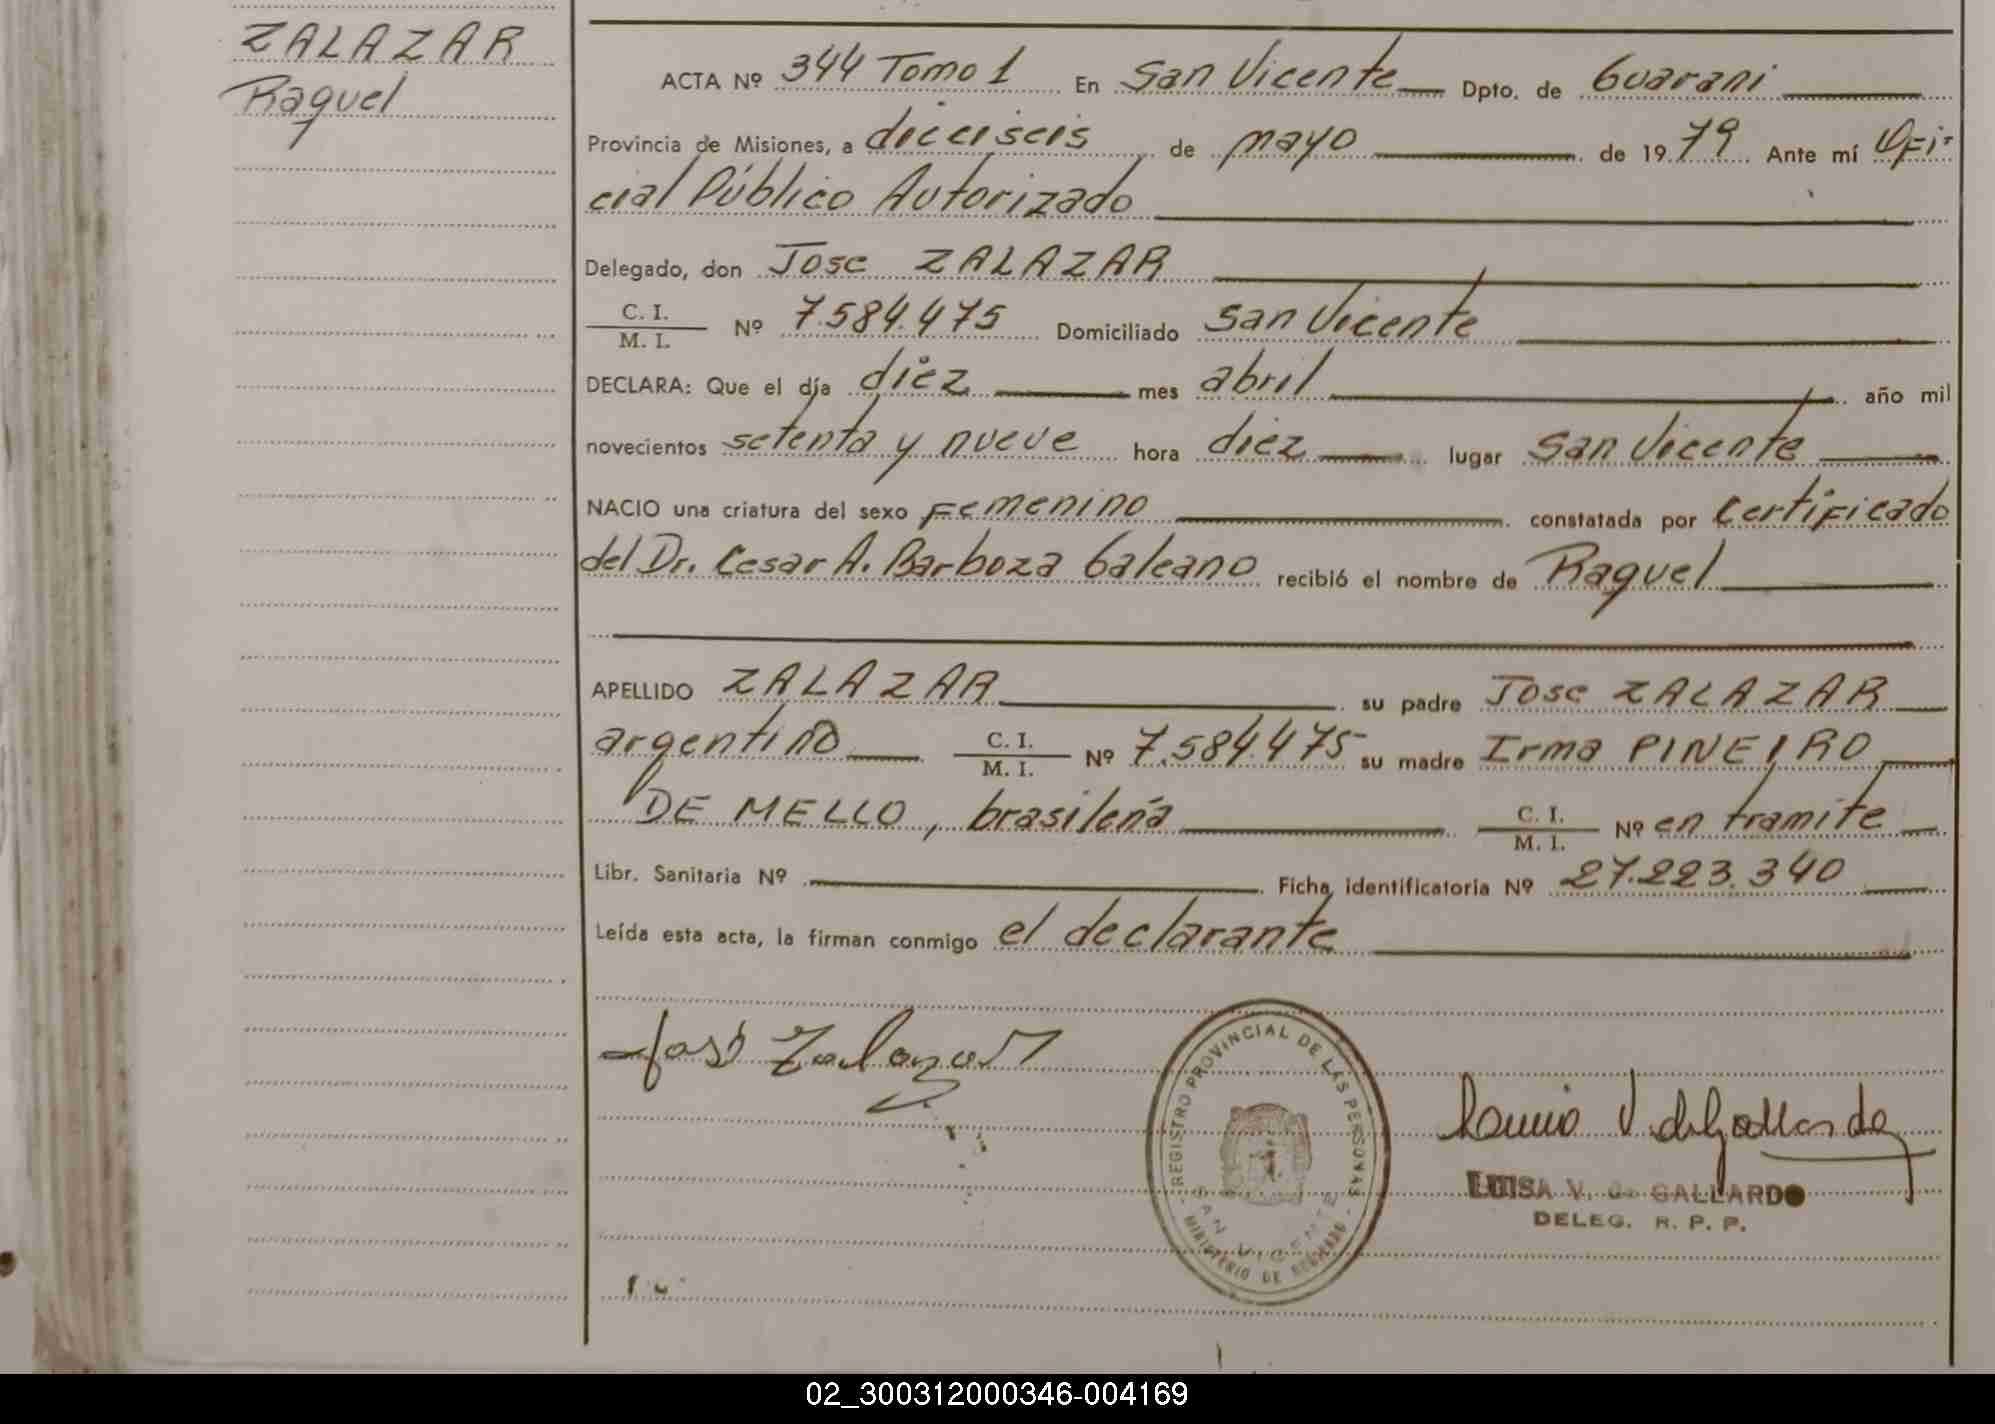 ZALAZAR
Raquel
ACTA Nº 344 Tomo 1 En San Vicente Dpto. de Guarani
Provincia de Misiones, a dieciseis de mayo de 1979 Ante mí Ofi-
cial Público Autorizado
Delegado, don Jose ZALAZAR
C. I.
M. I. Nº 7.584.475 Domiciliado San Vicente
DECLARA: Que el día diez mes abril año mil
novecientos setenta y nueve hora diez lugar San Vicente
NACIO una criatura del sexo Femenino constatada por Certificado
del Dr. Cesar A. Barboza Galeano recibió el nombre de Raquel
APELLIDO ZALAZAR su padre Jose ZALAZAR
argentino C. I.
M. I. Nº 7.584.475 su madre Irma PINEIRO
DE MELLO, brasileña C. I.
M. I. Nº en tramite
Libr. Sanitaria Nº Ficha identificatoria Nº 27.223.340
Leída esta acta, la firman conmigo el declarante
José Zalazar
REGISTRO PROVINCIAL DE LAS PERSONAS
SAN VICENTE
MINISTERIO DE GOBIERNO
Luisa V de Gallardo
LUISA V. de GALLARDO
DELEG. R. P. P.
02_300312000346-004169